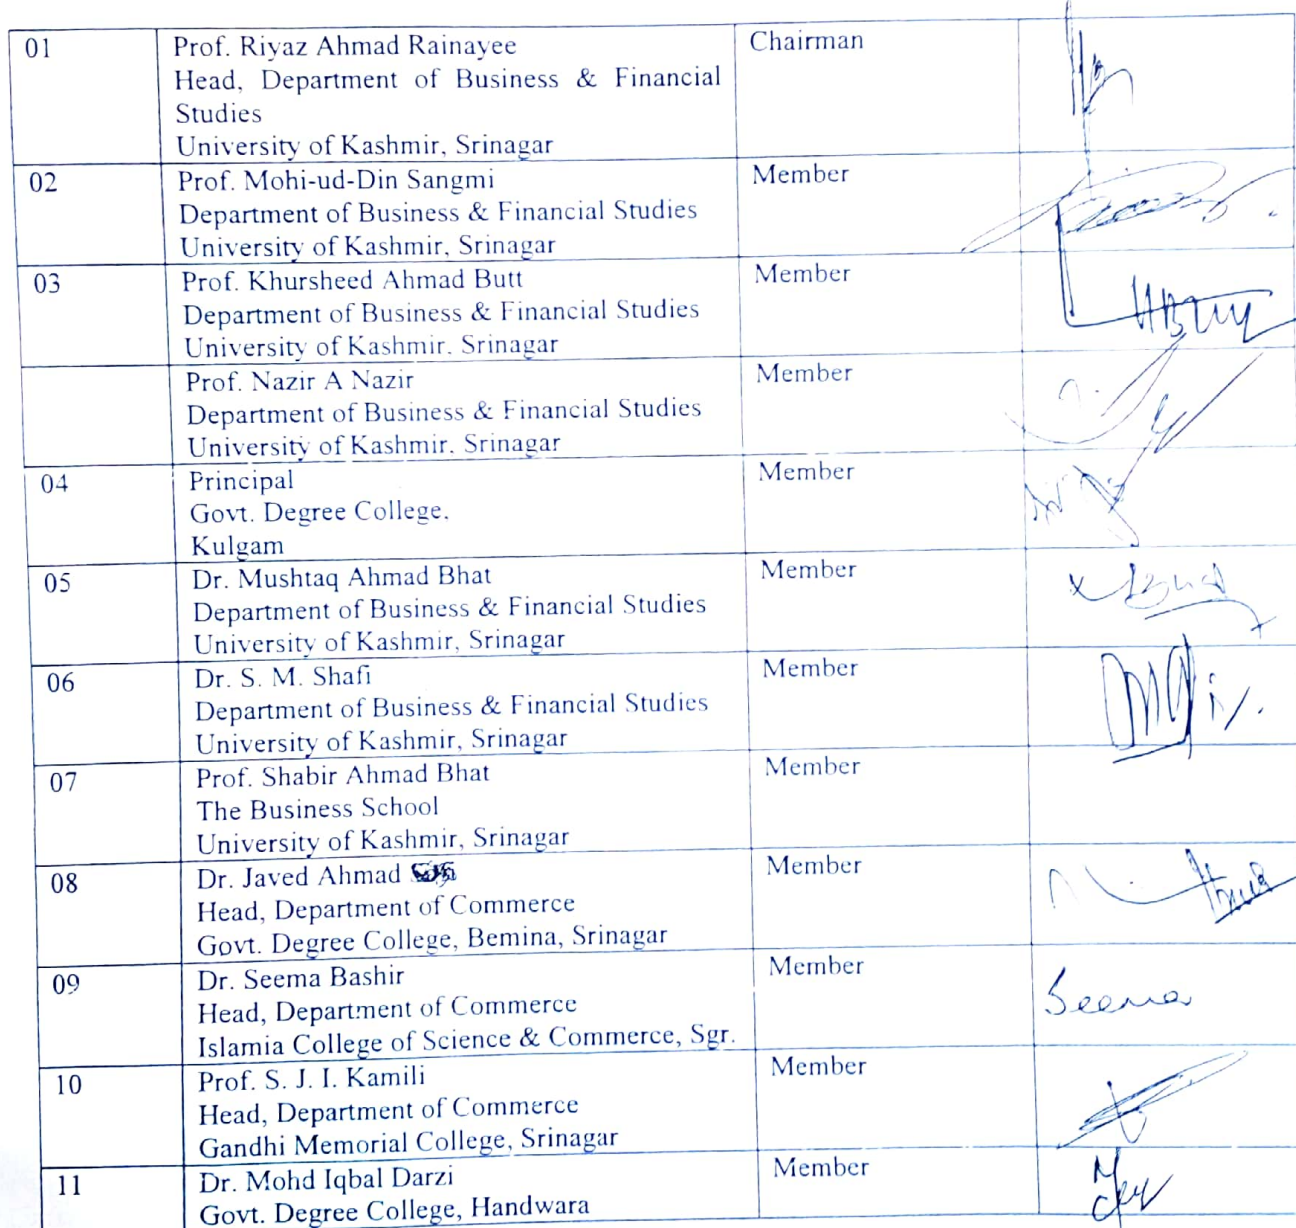 01 Prof. Riyaz Ahmad Rainayee Chairman
Head, Department of Business & Financial
Studies
University of Kashmir, Srinagar
02 Prof. Mohi-ud-Din Sangmi Member
Department of Business & Financial Studies
University of Kashmir, Srinagar
03 Prof. Khursheed Ahmad Butt Member
Department of Business & Financial Studies
University of Kashmir. Srinagar
Prof. Nazir A Nazir Member
Department of Business & Financial Studies
University of Kashmir. Srinagar
04 Principal Member
Govt. Degree College.
Kulgam
05 Dr. Mushtaq Ahmad Bhat Member
Department of Business & Financial Studies
University of Kashmir, Srinagar
06 Dr. S. M. Shafi Member
Department of Business & Financial Studies
University of Kashmir, Srinagar
07 Prof. Shabir Ahmad Bhat Member
The Business School
University of Kashmir, Srinagar
08 Dr. Javed Ahmad Member
Head, Department of Commerce
Govt. Degree College, Bemina, Srinagar
09 Dr. Seema Bashir Member Seema
Head, Department of Commerce
Islamia College of Science & Commerce, Sgr.
10 Prof. S. J. I. Kamili Member
Head, Department of Commerce
Gandhi Memorial College, Srinagar
11 Dr. Mohd Iqbal Darzi Member
Govt. Degree College, Handwara